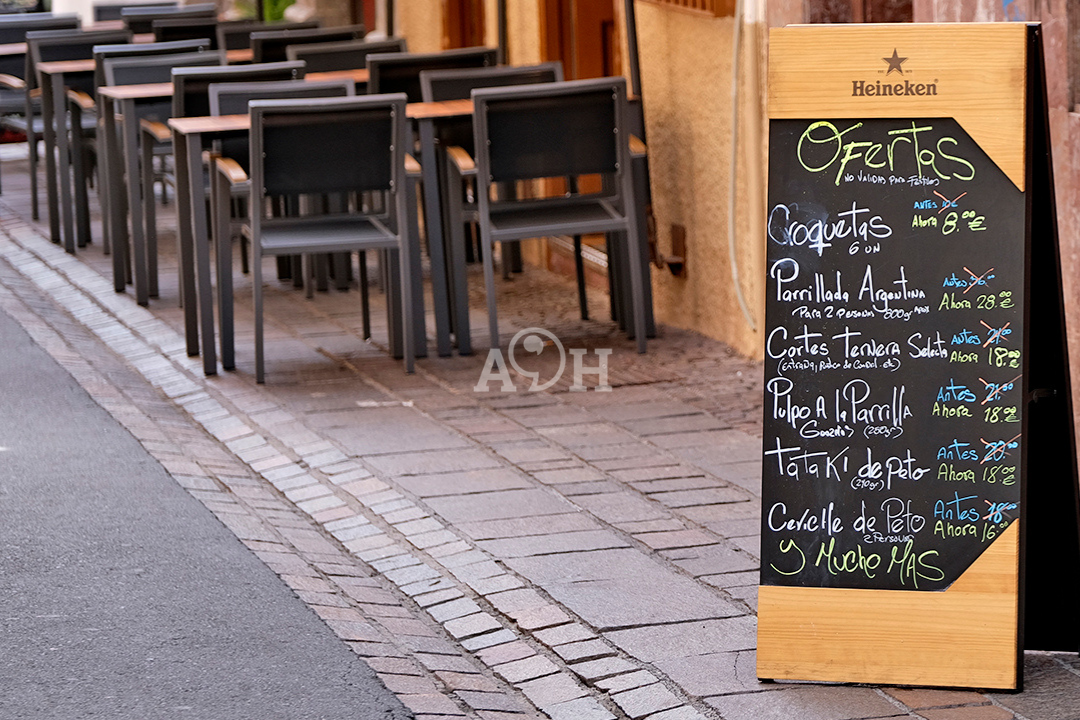 Heineken
Ofertas
NO VALIDAS PARA FESTIVOS
Croquetas Antes 10€
6 UN Ahora 8.00 €
Parrillada Argentina Antes
Para 2 personas 800gr Ahora 28.00 €
Cortes Ternera Selecta Antes
Ahora 18.00 €
Pulpo A la Parrilla Antes
(250gr) Ahora 18.00 €
TATAKI de Peto Antes 20.00
(210gr) Ahora 18.00 €
Ceviche de Peto Antes 18.00
2 Personas Ahora 16.00
y Mucho MAS
A H